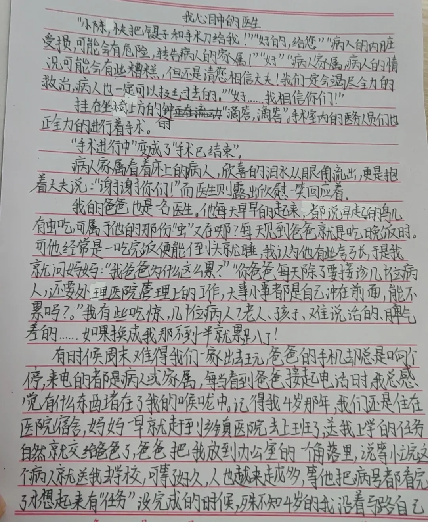 我心目中的医生
"小陈,快把镊子和手术刀给我!""好的,给您!""病人的内脏
受损,可能会有危险,转告病人的家属!""好!""病人家属,病人的情
况可能会有些糟糕,但还是请您相信大夫!我们一定会竭尽全力的
救治,病人也一定可以挺过去的。""好……我相信你们!"
挂在坐椅上方的钟正在滴 "滴答,滴答",手术室内的医务人员们也
正全力的进行着手术。
"手术进行中"变成了"手术已结束"。
病人家属看着床上的病人,欣喜的泪水从眼角流出,更是抱
着大夫说:"谢谢你们!"而医生则露出欣慰 笑回应着。
我的爸爸也是一名医生,他每天早早的起来,都说早起的鸟儿
有虫吃,可属于他的那份"虫"又在哪?每天见到爸爸就是吃晚饭时。
可他经常是一吃完饭便能倒头就睡,我认为他有些夸张,于是我
就问妈妈:"我爸爸为什么这么累?""你爸爸每天除了要接诊几十位病
人,还要处理医院管理上的工作,大事小事都是自己冲在前面,能不
累吗?。"我有些吃惊,几十位病人?老人、孩子、难说话的、脾气
差的……如果换成我那不到半就累趴了!
有时候周末难得我们一家出去玩,爸爸的手机却总是响个
停,来电的都是病人或家属,每当看到爸爸接起电话时我总感
觉有什么东西堵在了我的喉咙中,记得我4岁那年,我们还是住在
医院宿舍,妈妈早就走到乡镇医院去上班了,送我上学的任务
自然就交给爸爸了,爸爸把我放到办公室的一角落里,说等小完这
个病人就送我去学校,可等好久,人也越来越多,等他把病号都看完
了才想起来有"任务"没完成的时候,殊不知4岁的我沿着马路自己